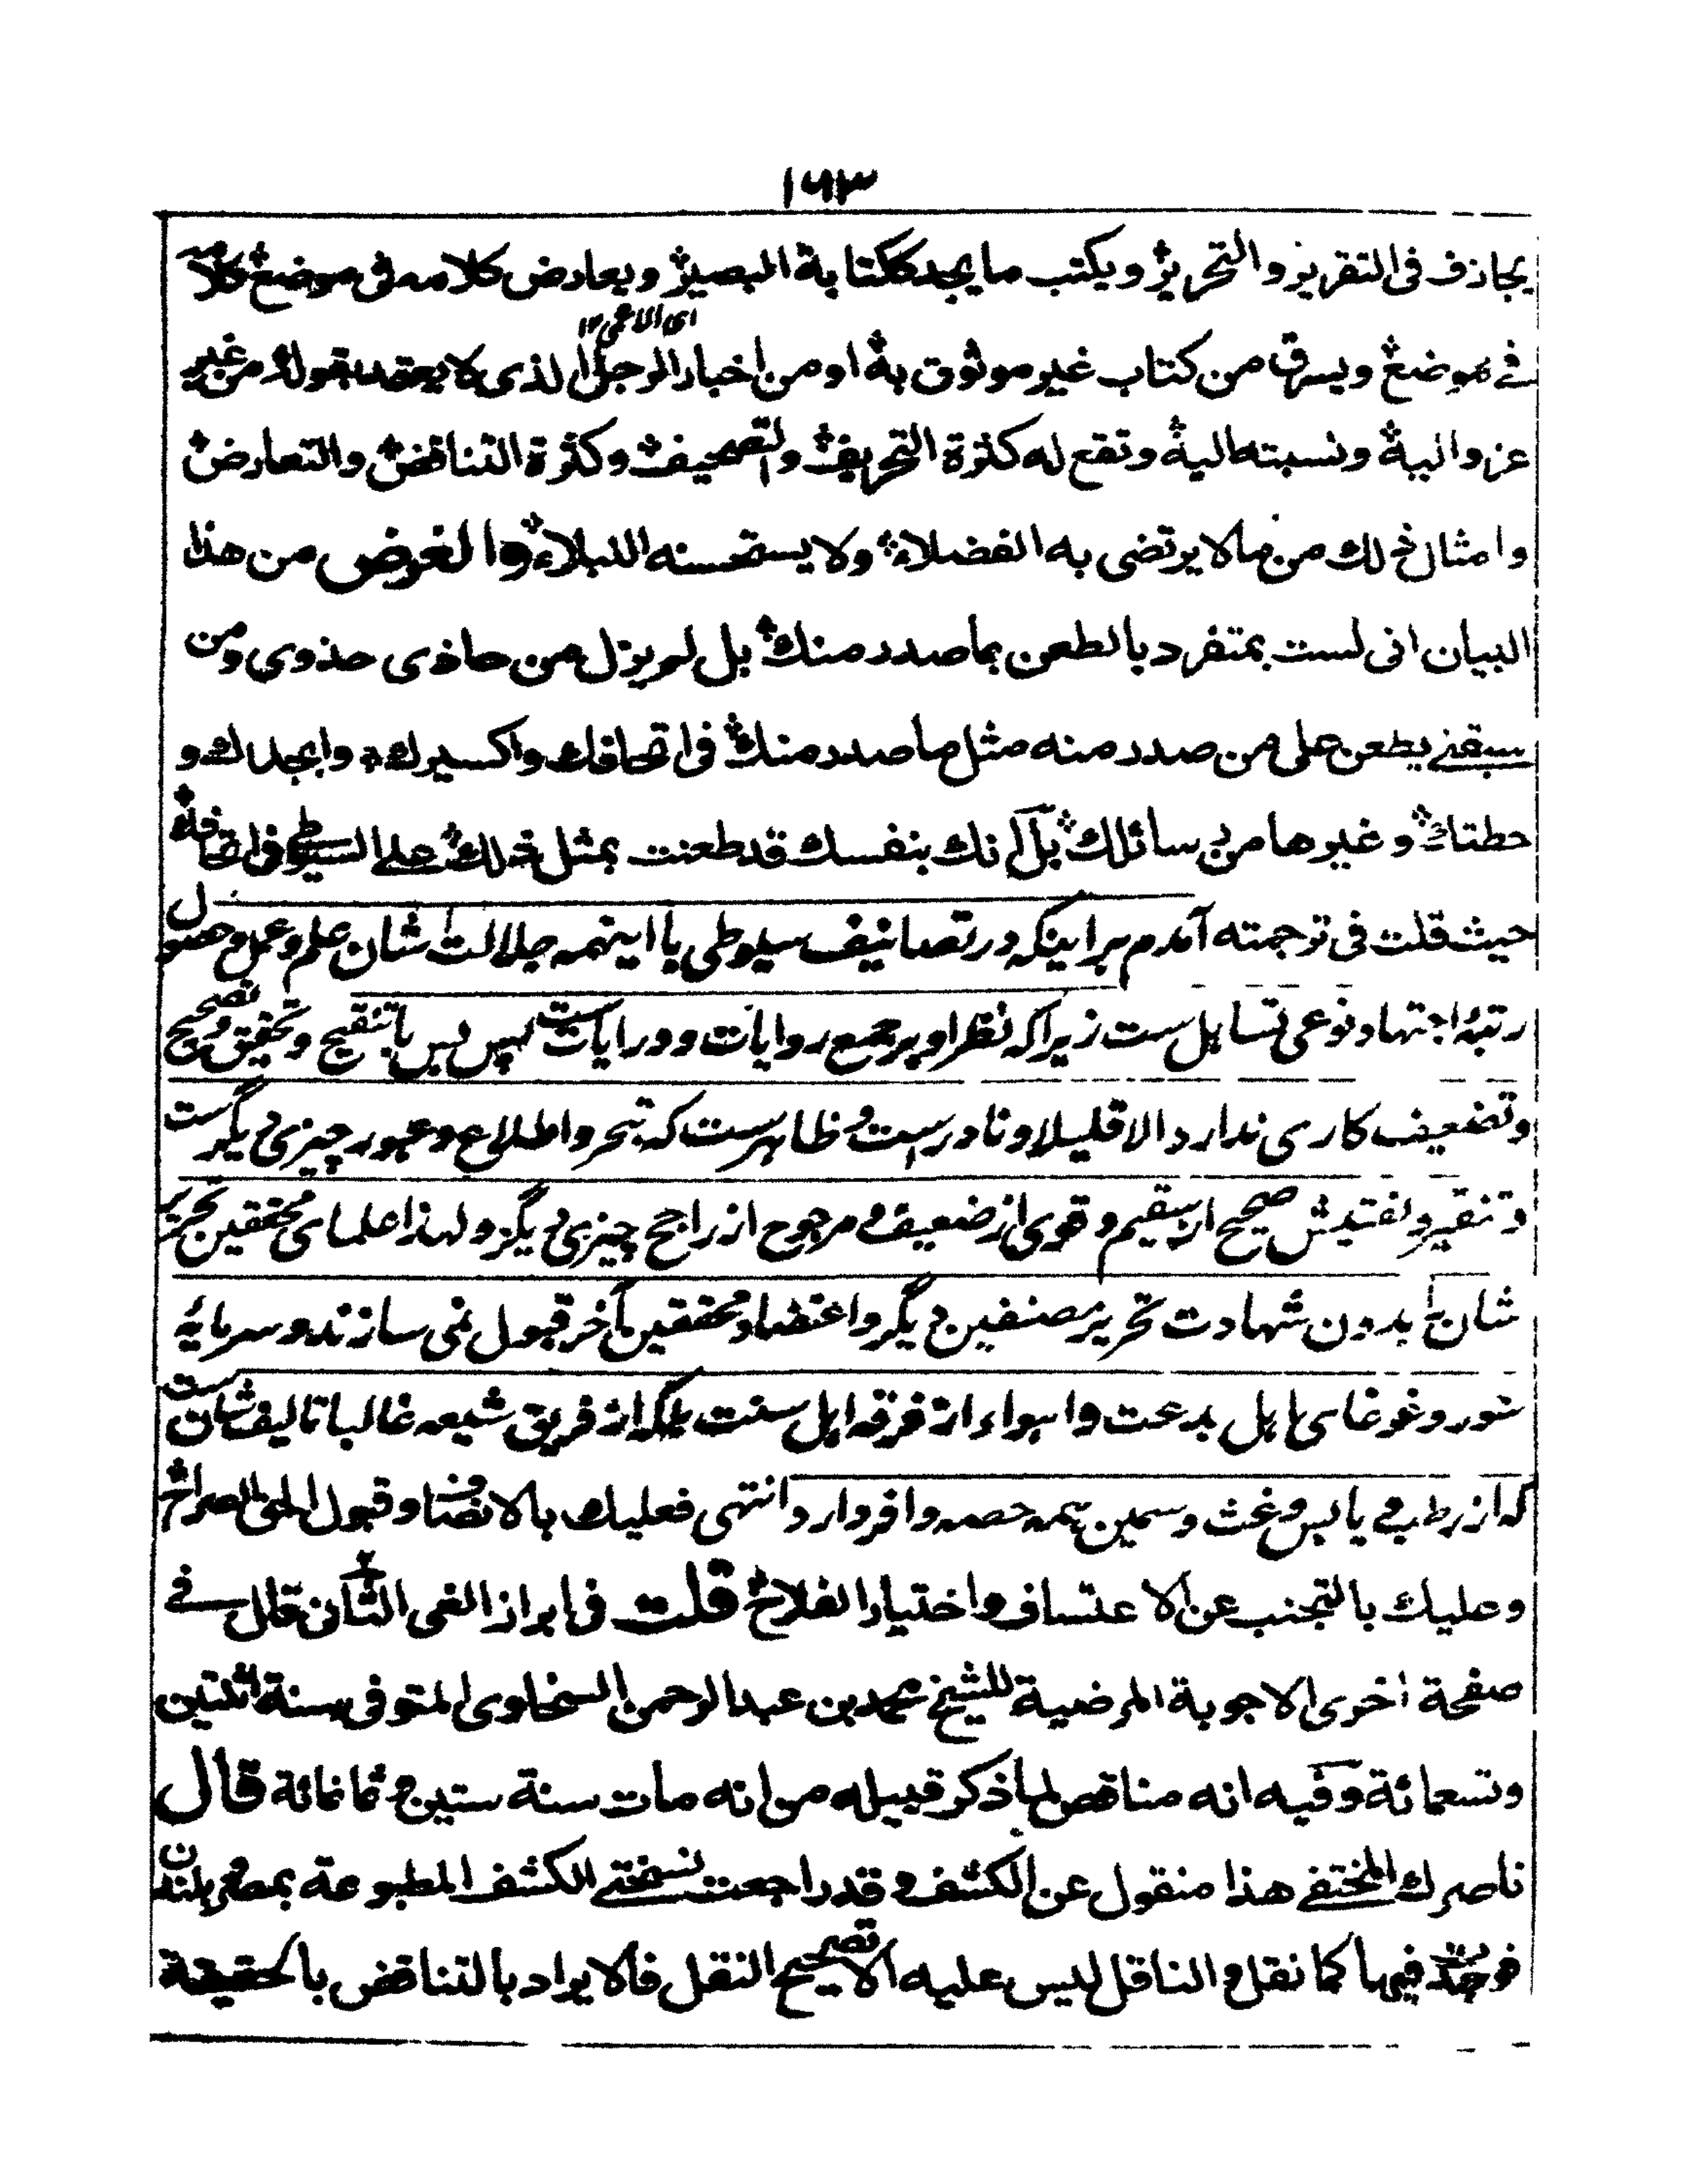 ١٦٣
يجازف فى التقرير والتحرير ويكتب ما يجد ككتابة البصير ويعارض كلامه فى موضع كلامه
اى الاعمى ١٢
فى موضع ويسرق من كتاب غير موثوق به او من اخبار الرجل الذى لا يعتمد بقوله من غير
عزو اليه ونسبته اليه وتقع له كثرة التحريف والتصحيف وكثرة التناقض والتعارض
وامثال ذلك من ما لا يرتضى به الفضلاء ولا يستحسنه النبلاء والغرض من هذا
البيان انى لست بمتفرد بالطعن بما صدر منك بل لم يزل من حاذى حذوى ومن
سبقنى يطعن على من صدر منه مثل ما صدر منك فى اتحافك واكسيرك وابجدك و
حطتك وغيرها من رسائلك بل انك بنفسك قد طعنت بمثل ذلك على السيوطى فى اتحافك
حيث قلت فى ترجمته آمدم بر اينكه در تصانيف سيوطى با اينهمه جلالت شان علم وعمل وحصول
رتبهٔ اجتهاد نوعى تساہل ست زيرا كه نظر او بر جمع روايات و درايات ست بس پس با تنقيح وتحقيق وتصحيح
وتضعيف كارى ندارد الا قليلا و نادر ست و ظاہر ست كه تبحر واطلاع وعبور چيزى ديگر ست
وتنقير وتفتيش صحيح از سقيم و قوى از ضعيف و مرجوح از راجح چيزى ديگر ولهذا علماى محققين تحرير
شان را بدون شهادت تحرير مصنفين ديگر واعتضاد محققين آخر قبول نمى سازند و سرمايهٔ
شور وغوغاى اہل بدعت واہواء از فرقه اہل سنت بلكه از فريق شيعه غالبا تاليف شان ست
كه از رطب و يابس وغث وسمين ہمه حصه وافر دارد انتهى فعليك بالانصاف وقبول الحق الصراح
وعليك بالتجنب عن الاعتساف واختيار الفلاح قلت فى ابراز الغى الثانى قال فى
صفحة اخرى الاجوبة المرضية للشيخ محمد بن عبد الرحمن السخاوى المتوفى سنة اثنتين
وتسعمائة وفيه انه مناقض لما ذكر قبيله من انه مات سنة ستين وثمانمائة قال
ناصرك المختفى هذا منقول عن الكشف وقد راجعت نسختى الكشف المطبوعة بمصر ولندن
فوجد فيها كما نقل والناقل ليس عليه الا تصحيح النقل فالايراد بالتناقض بالحقيقة